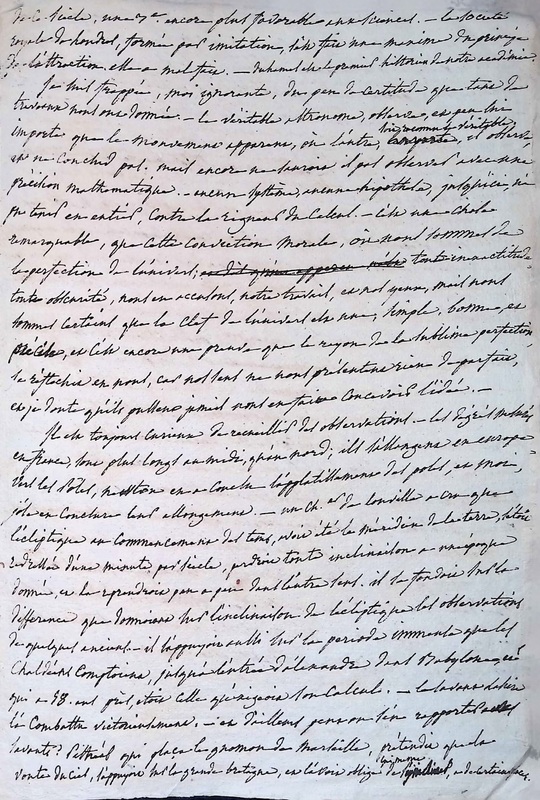 de ce siècle, une 7e encore plus favorable aux sciences. — la société
royale de londres, formée par imitation, s'est faite une maxime du principe
de l'attraction. elle a mal fait. — duhamel est le premier historien de notre académie.
Je suis frappée, moi ignorante, du peu de certitude que tant de
travaux nous ont donnée. — le véritable astronome, observe, et peu lui
importe que le mouvement apparent, ou l'autre, soit reconnu véritable, il observe,
et ne conclud pas. mais encore ne sauroit il pas observer avec une
précision mathématique. — aucun système, aucune hipothèse, jusqu'ici ne
put tenir en entier, contre la rigueur du calcul. — c'est une chose
remarquable, que cette conviction morale, où nous sommes de
la perfection de l'univers, toute inexactitude
toute obscurité, nous en accusons, notre travail, et nos yeux, mais nous
sommes certains que la clef de l'univers est une, simple, bonne, et
précise, et c'est encore une preuve que le rayon de la sublime perfection
se réfléchit en nous, car nos sens ne nous présentent rien de parfait,
et je doute qu'ils pussent jamais nous en faire concevoir l'idée. —
Il est toujours curieux de recueillir des observations. — les degrés mesurés
en france, sont plus longs au midi, qu'au nord; ils s'allongent en europe
vers les pôles, newton en a conclu l'applatissement des pôles, et moi,
j'ose en conclure leur allongement. — un ch. de louville a cru que
l'écliptique au commencement des tems, avoit été le méridien de la terre, s'étoit
redressée d'une minute par siècle, perdroit toute inclinaison a une époque
donnée, et la reprendroit peu a peu dans l'autre sens. il se fondoit sur la
différence que donnoient sur l'inclinaison de l'écliptique les observations
de quelques anciens. — il s'appuyoit aussi sur la période immense que les
Chaldéens comptoient, jusqu'à l'entrée d'alexandre dans Babylone, et
qui a 98. ans près, étoit celle qu'exigeoit son calcul. —
le combattu victorieusement. — en d'ailleurs peut on s'en rapporter aux
savants? qui plaça le gnomon de Marseille, prétendit que la
voute du ciel, s'appuyoit sur la grande bretagne, et